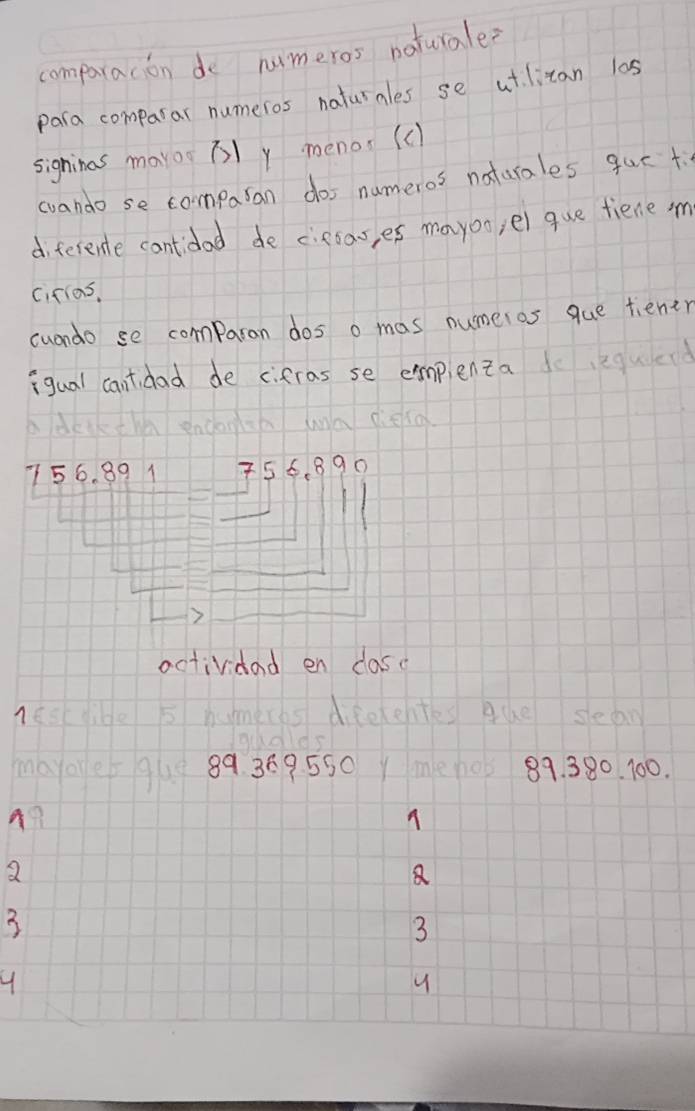 comparación de numeros naturales
para comparar numeros naturales se utilizan los
signinos mayor (>) y menor (<)
cuando se comparan dos numeros naturales que ti
diferente cantidad de cifras, es mayor, el que tiene m
cifras.
cuando se comparan dos o mas numeros que tienen
igual cantidad de cifras se empienza de izquierd
a derecha una cifra
756.891 756.890
= 
=
=
=
=
>
actividad en clase
1 escribe 5 numeros diferentes que sean
mayores que 89.369.550 y menos 89.380.100.
1 1
2 2
3 3
4 4